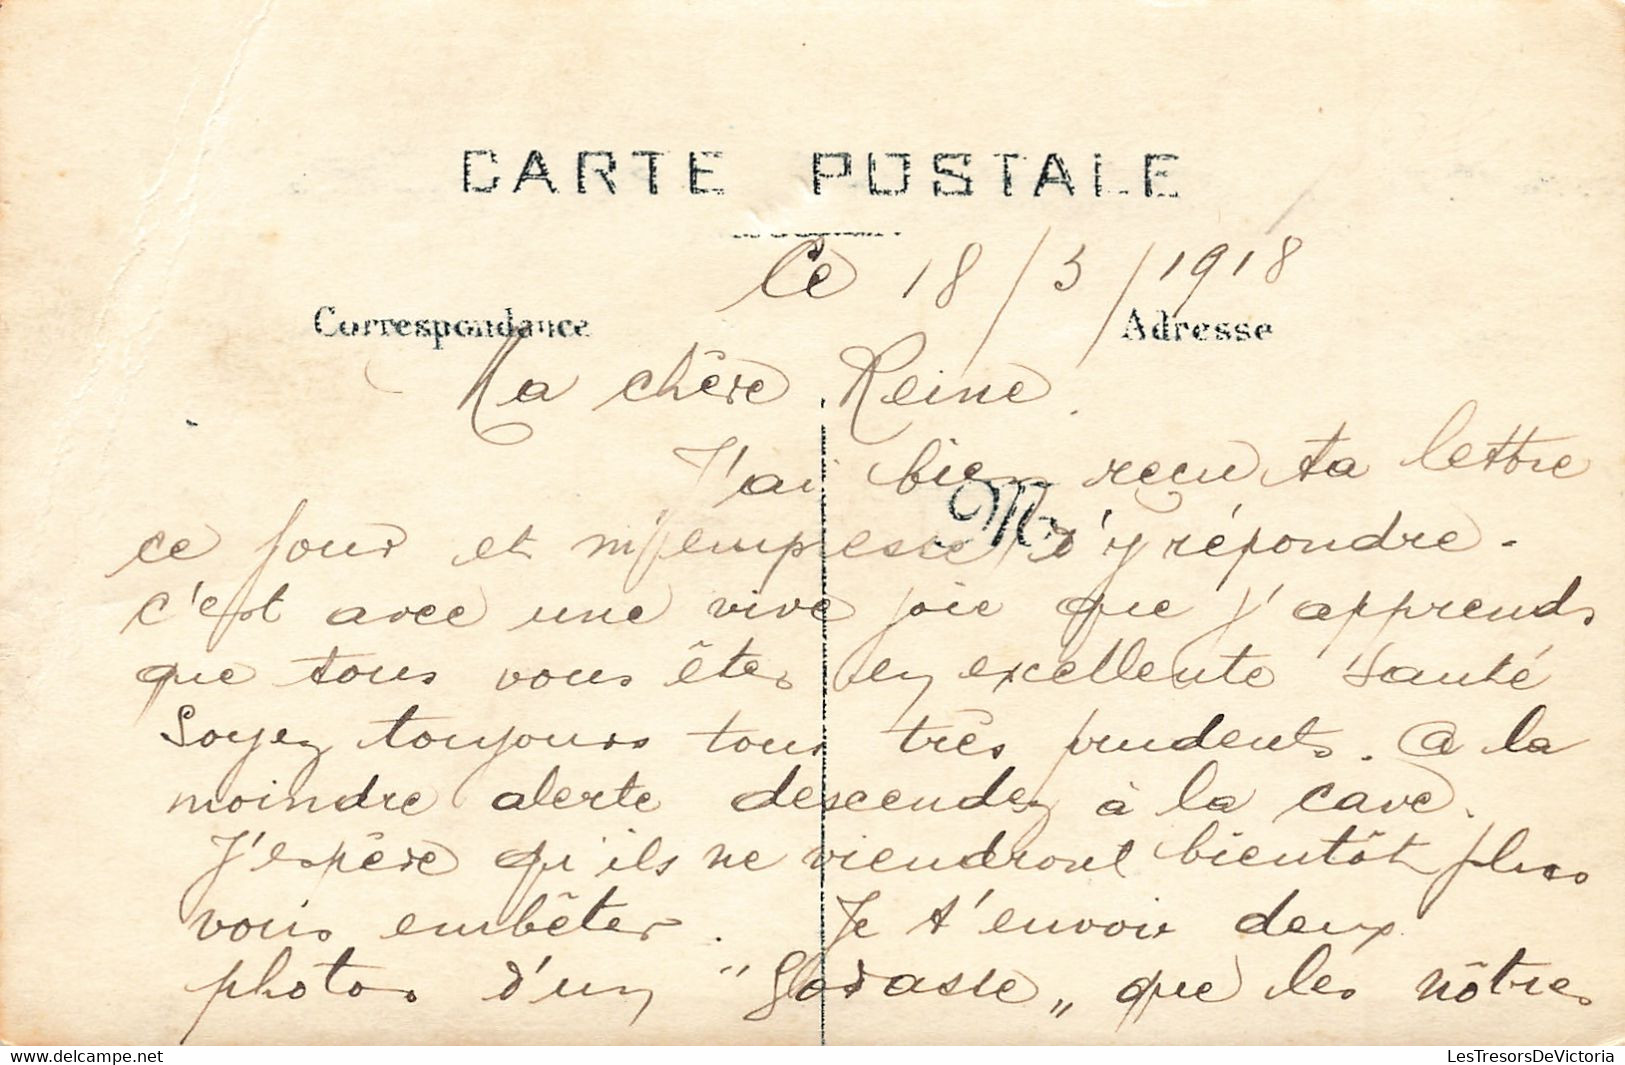 CARTE POSTALE
Le 18/3/1918
Correspondance
Adresse
Ma chère Reine.
J'ai bien reçu ta lettre
M
ce jour et m'empresse d'y répondre.
c'est avec une vive joie que j'apprends
que tous vous êtes en excellente santé
Soyez toujours tous très prudents. A la
moindre alerte descendez à la cave.
J'espère qu'ils ne viendront bientôt plus
vous embêter. Je t'envoie deux
photos d'un "          „ que les nôtres
www.delcampe.net
LesTresorsDeVictoria